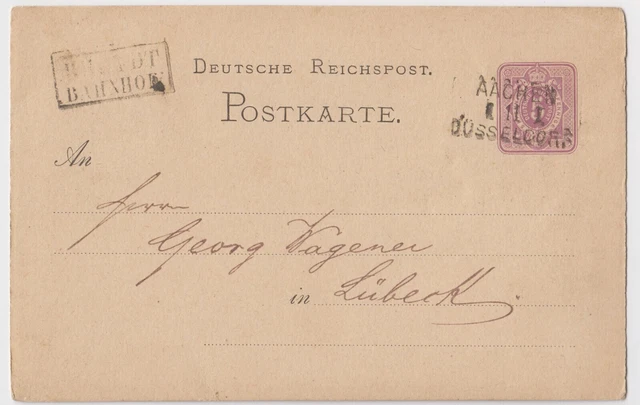 BAHNHOF
DEUTSCHE REICHSPOST.
POSTKARTE.
AACHEN
11 I
DÜSSELDORF
An
Herrn
Georg Wagener
in Lübeck.